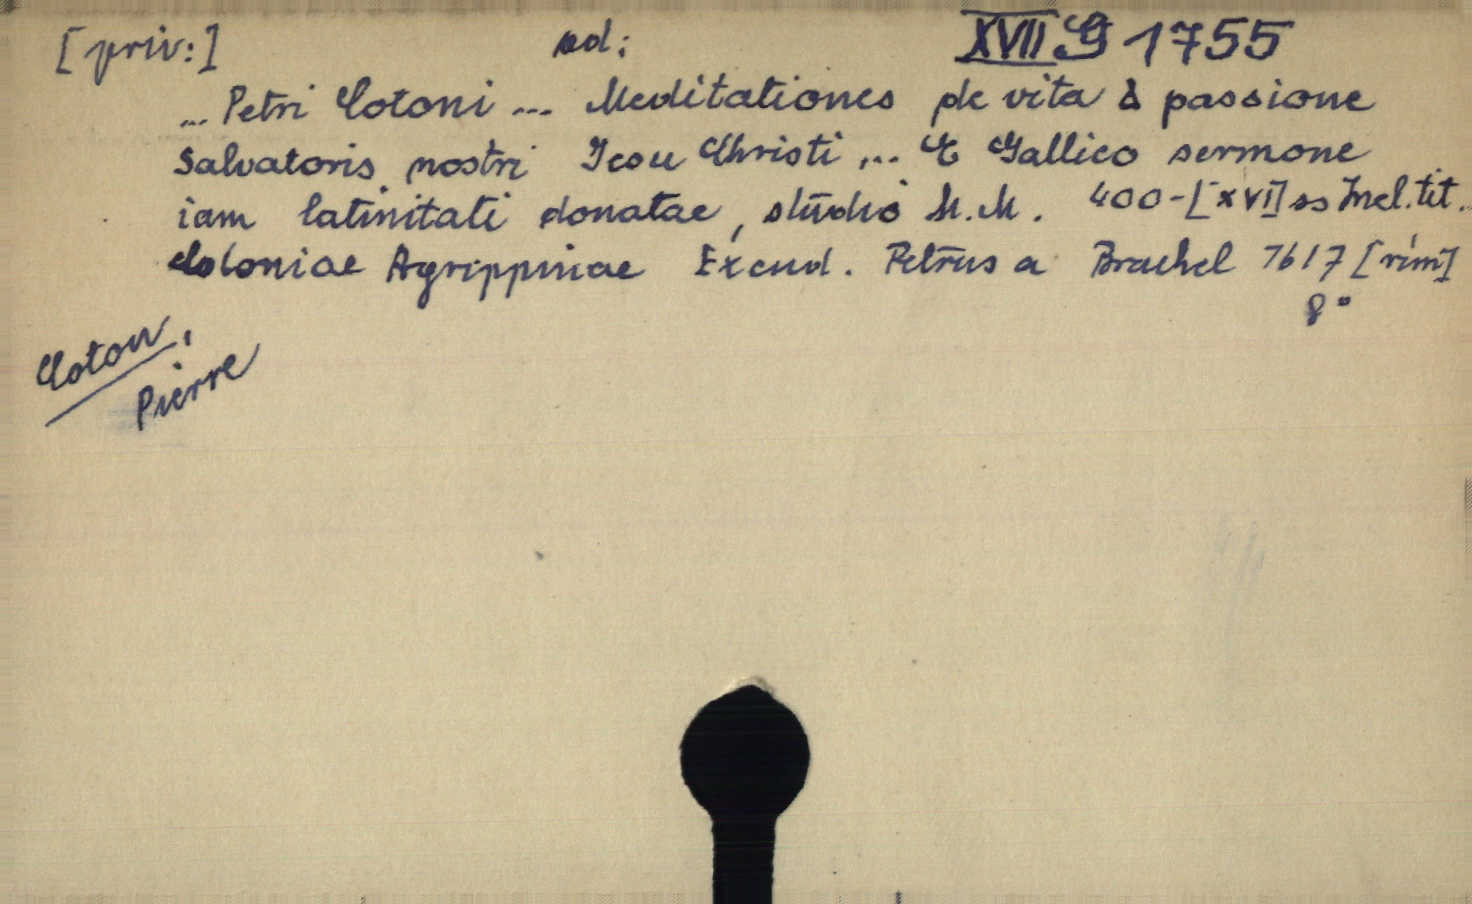 [priv:] ad: XVII G 1755
... Petri Cotoni ... Meditationes de vita & passione
Salvatoris nostri Iesu Christi ... E Gallico sermone
iam latinitati donatae, studio M.M. 400-[XVI] ss Incl. tit.
Coloniae Agrippinae Excud. Petrus a Brachel 1617 [rím]
8°
Coton,
Pierre